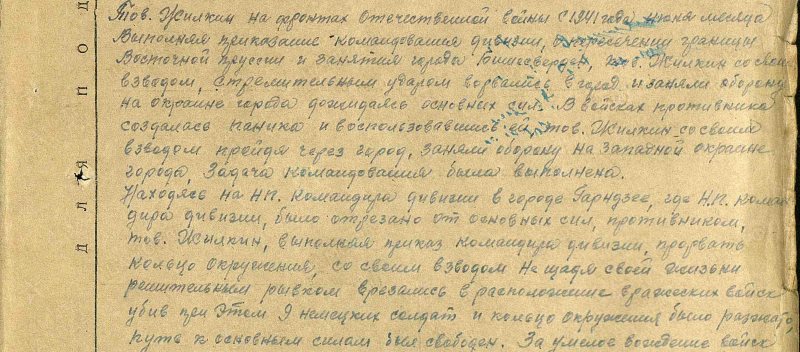 Тов. Жилкин на фронтах отечественной войны с 1941 года, июня месяца
Выполняя приказание командования дивизии, о пересечении границы
Восточной пруссии и занятия города Бишесвердер, тов. Жилкин со своим
взводом, стремительным ударом ворвались в город и заняли оборону
на окраине города дожидаясь основных сил. В войсках противника
создалась паника и воспользовавшись ей тов. Жилкин со своим
взводом пройдя через город, заняли оборону на западной окраине
города, задача командования была выполнена.
Находясь на НП. командира дивизии в городе Гарндзее, где Н.П. коман
дира дивизии, было отрезано от основных сил, противником,
тов. Жилкин, выполняя приказ командира дивизии, прорвать
кольцо окружения, со своим взводом не щадя своей жизни
решительным рывком врезались в расположение вражеских войск
убив при этом 9 немецких солдат и кольцо окружения было разжато,
путь к основным силам был свободен. За умелое вождение войск
для под